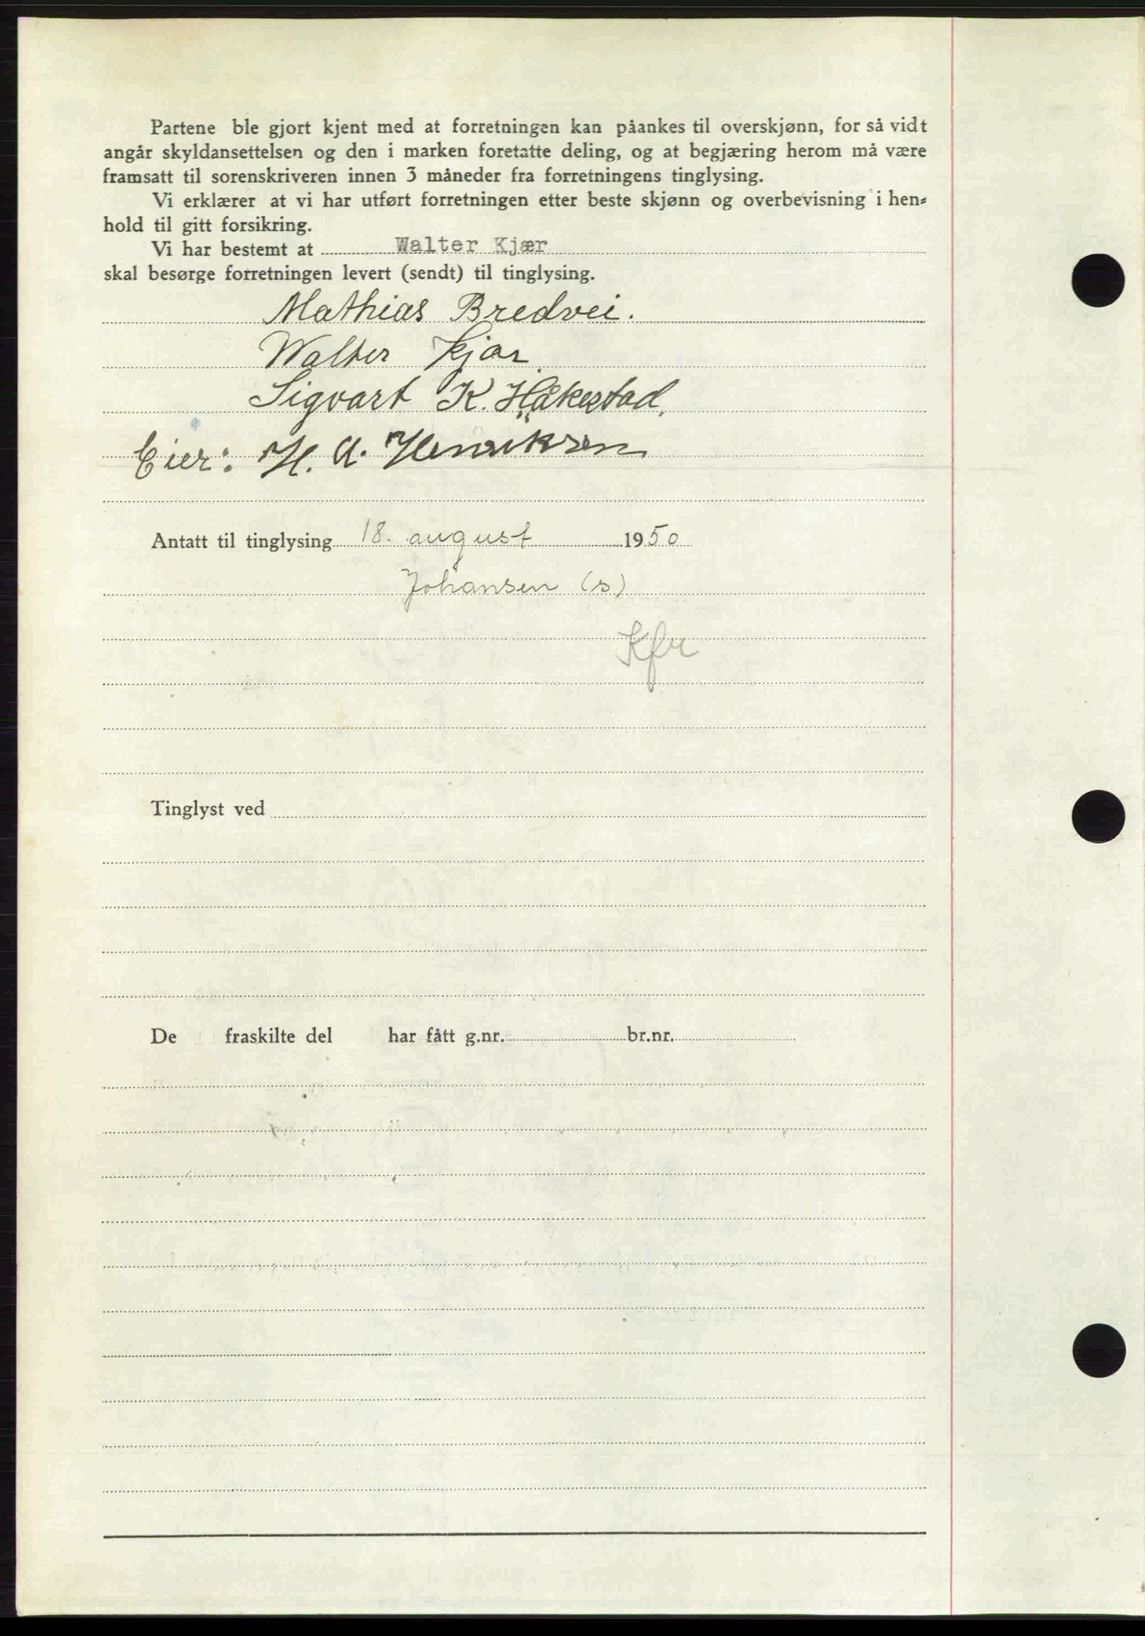 Partene ble gjort kjent med at forretningen kan påankes til overskjønn, for så vidt
angår skyldansettelsen og den i marken foretatte deling, og at begjæring herom må være
framsatt til sorenskriveren innen 3 måneder fra forretningens tinglysing.
Vi erklærer at vi har utført forretningen etter beste skjønn og overbevisning i hen-
hold til gitt forsikring.
Vi har bestemt at Walter Kjær
skal besørge forretningen levert (sendt) til tinglysing.
Mathias Bredvei.
Walter Kjær
Sigvart K. Håkestad,
Eier: H. A. Henriksen
Antatt til tinglysing 18. august 1950
Johansen (s)
Tinglyst ved
De fraskilte del har fått g.nr. br.nr.